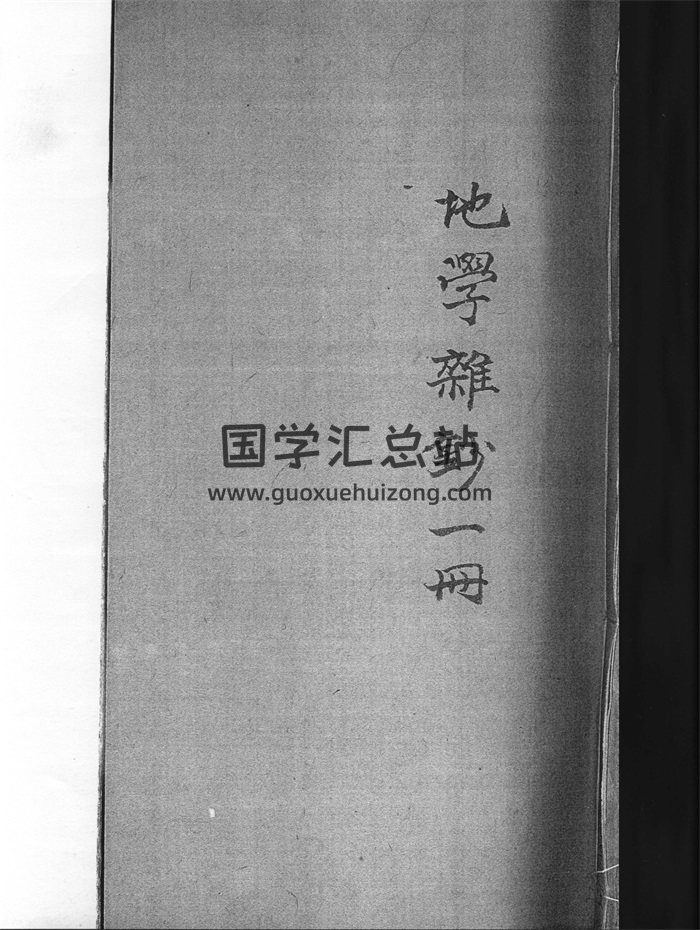 地學雜鈔一冊
国学汇总站
www.guoxuehuizong.com